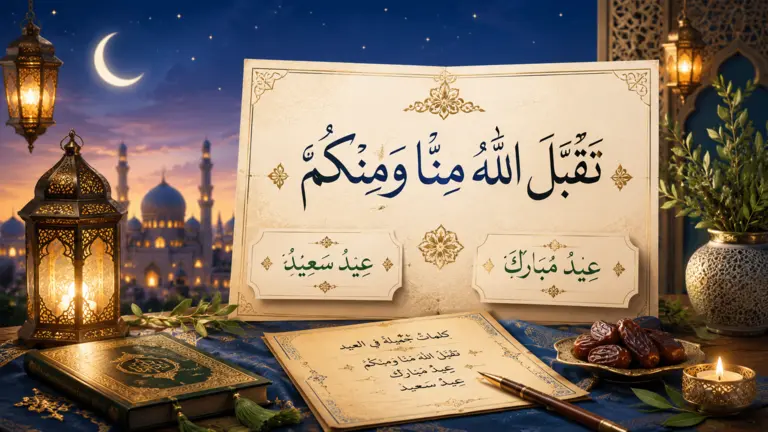 تَقَبَّلَ اللّٰهُ مِنَّا وَمِنْكُمْ
عِيْدُ مُبَارَكَ
عِيْدُ سَعِيْدُ
كلماتٌ جَمْيلة في العيد
تقبل الله منا ومنكم
عيدُ مُبارك
عيدُ سَعيد